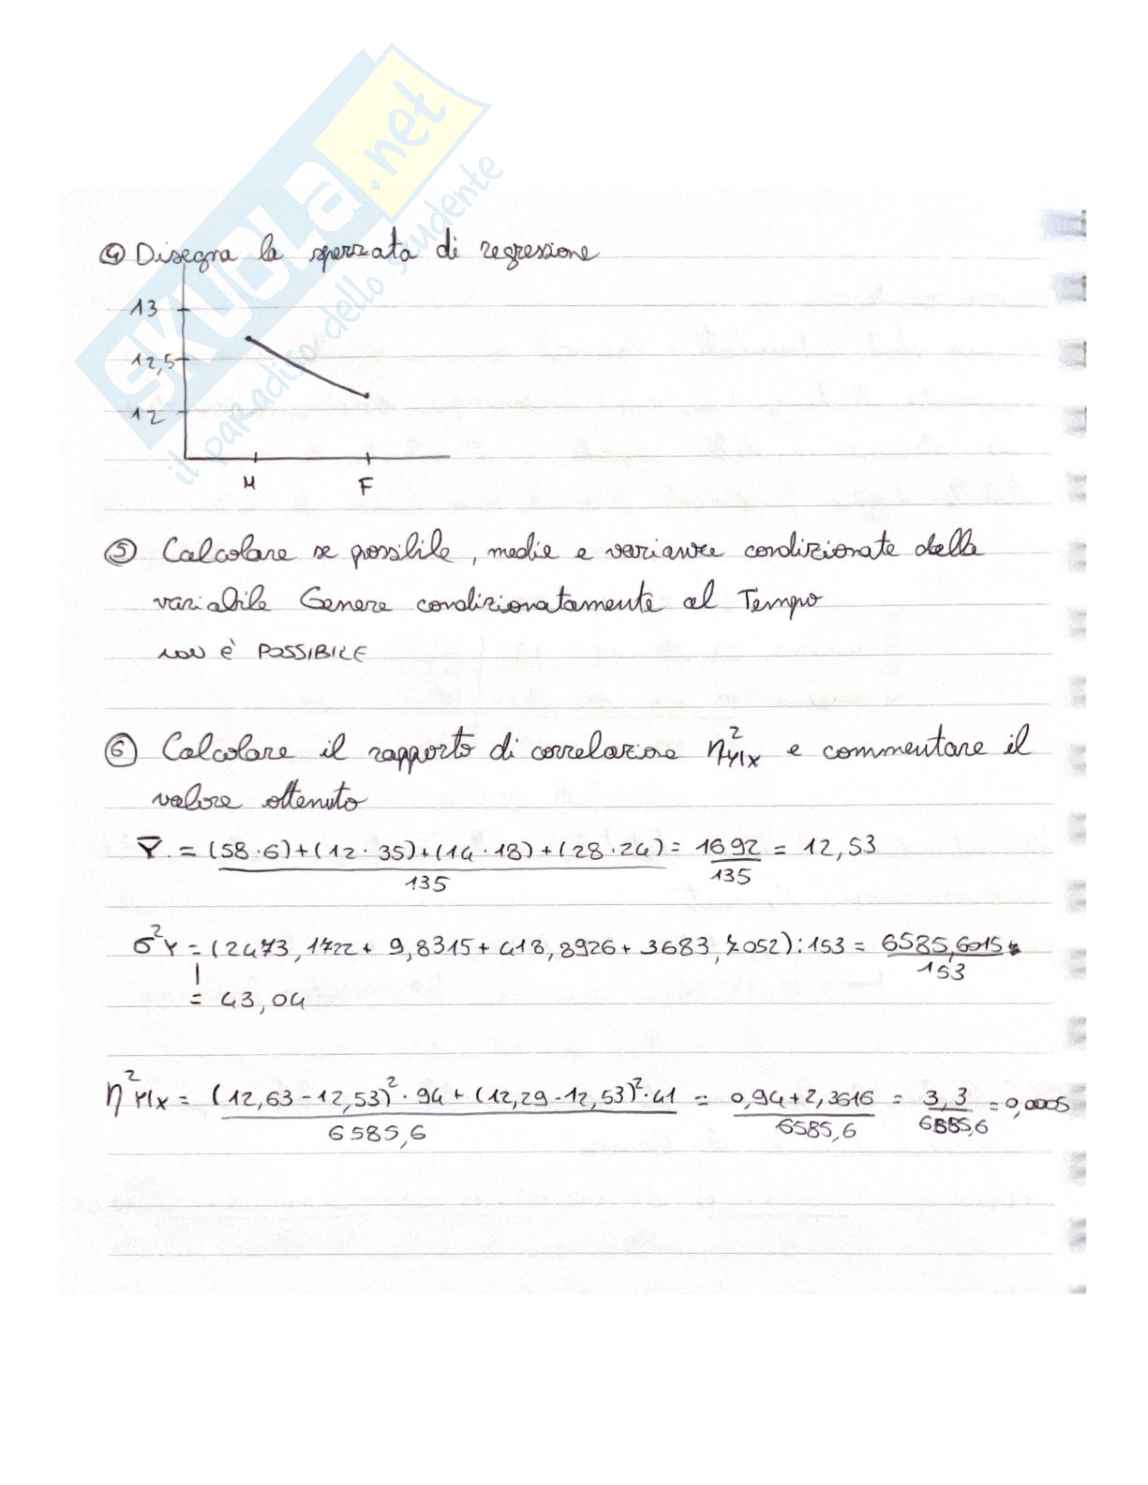 SKUOLA.net
il paradiso dello studente
④ Disegna la spezzata di regressione
13
12,5
12
M
F
⑤ Calcolare se possibile, medie e varianze condizionate della
variabile Genere condizionatamente al Tempo
NON È POSSIBILE
⑥ Calcolare il rapporto di correlazione η²Y|X e commentare il
valore ottenuto
Ȳ = (58·6)+(12·35)+(14·18)+(28·24) = 1692 = 12,53
135 135
σ²Y = (2473,1722 + 9,8315 + 418,8926 + 3683,7052) : 153 = 6585,6015
153
= 43,04
η²Y|X = (12,63-12,53)²·94 + (12,29-12,53)²·41 = 0,94+2,3616 = 3,3 = 0,0005
6585,6 6585,6 6585,6